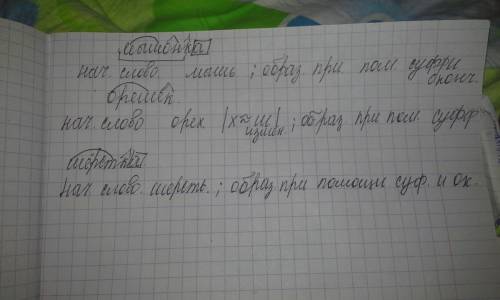 мышонка
нач. слово. мышь ; образ. при. пом. суфф и
оконч.
орешек
нач. слово орех. |х ≈ ш| ; образ при пом. суфф
измен
шерстка
нач. слово. шерсть. ; образ. при помощи суф. и ок.